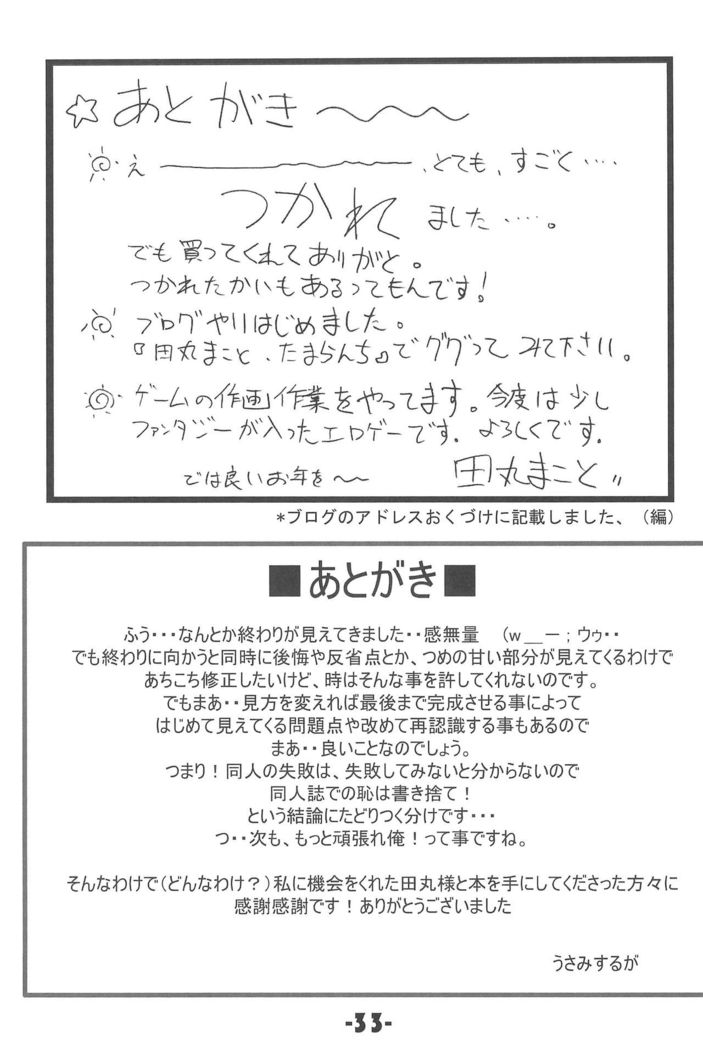 ☆あとがき〜〜〜
え―――――、とても、すごく‥‥
つかれました‥‥。
でも買ってくれてありがと。
つかれたかいもあるってもんです!
ブログやりはじめました。
『田丸まこと、たまらんち』でググってみて下さい。
ゲームの作画作業をやってます。今度は少し
ファンタジーが入ったエロゲーです.よろしくです.
では良いお年を〜〜 田丸まこと〃
*ブログのアドレスおくづけに記載しました、（編）
■あとがき■
ふう・・・なんとか終わりが見えてきました・・感無量　（w＿ー；ウゥ・・
でも終わりに向かうと同時に後悔や反省点とか、つめの甘い部分が見えてくるわけで
あちこち修正したいけど、時はそんな事を許してくれないのです。
でもまあ・・見方を変えれば最後まで完成させる事によって
はじめて見えてくる問題点や改めて再認識する事もあるので
まあ・・良いことなのでしょう。
つまり！同人の失敗は、失敗してみないと分からないので
同人誌での恥は書き捨て！
という結論にたどりつく分けです・・・
つ・・次も、もっと頑張れ俺！って事ですね。
そんなわけで（どんなわけ？）私に機会をくれた田丸様と本を手にしてくださった方々に
感謝感謝です！ありがとうございました
うさみするが
-33-